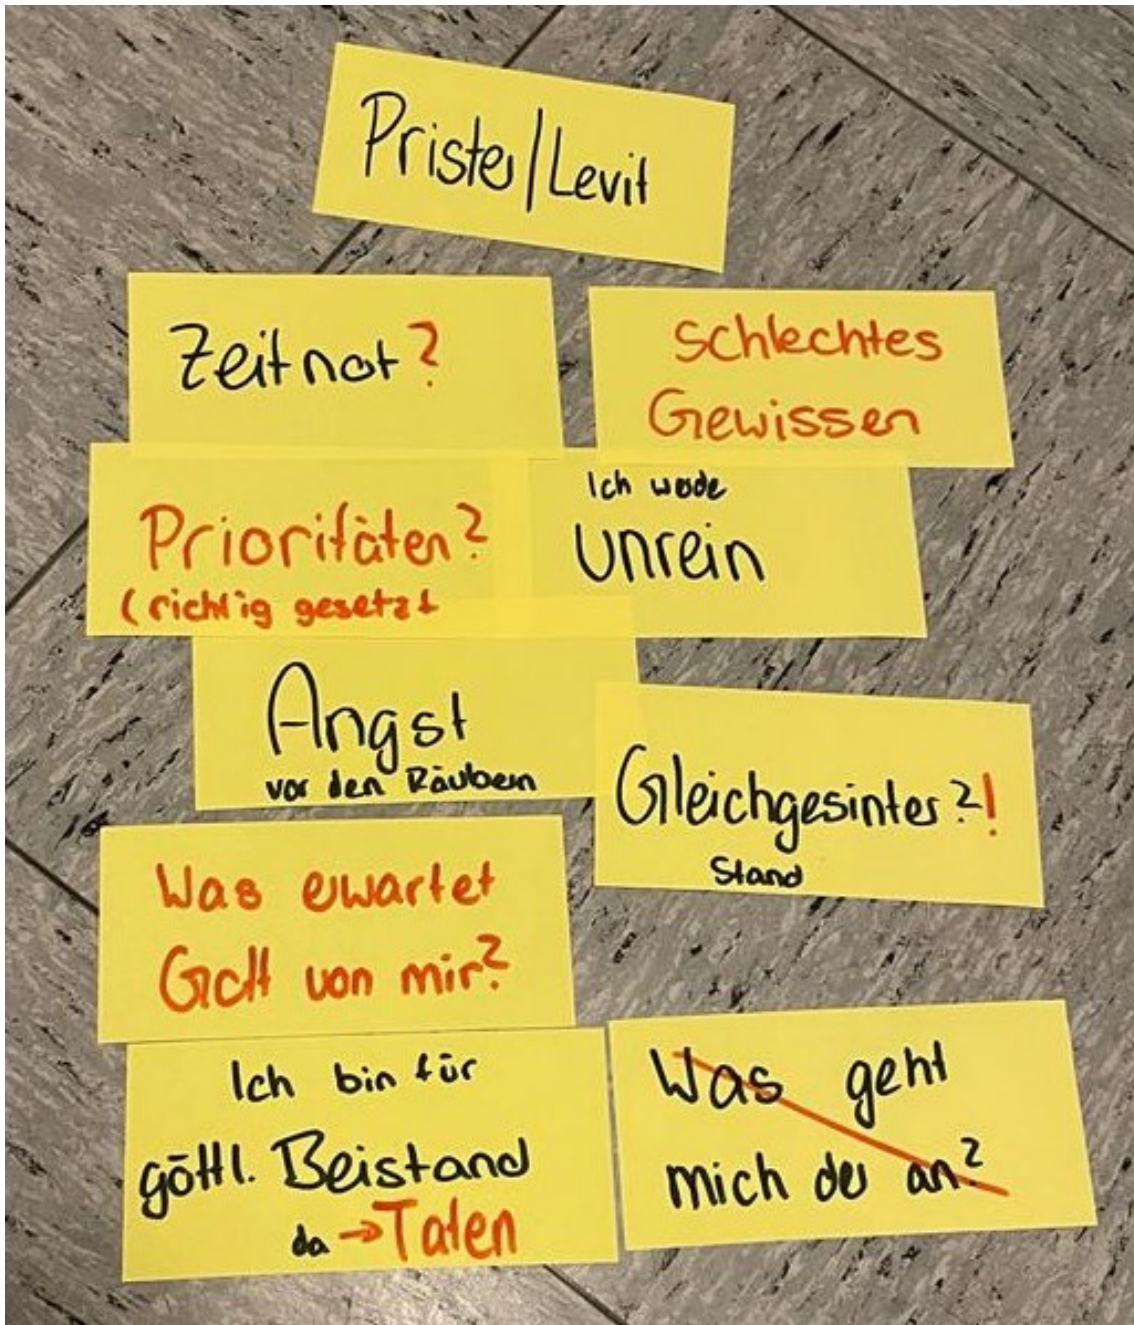 Prister/Levit
Zeitnot?
Schlechtes
Gewissen
Prioritäten?
(richtig gesetzt
Ich werde
unrein
Angst
vor den Räubern
Gleichgesinter?!
Stand
Was erwartet
Gott von mir?
Ich bin für
göttl. Beistand
da → Taten
Was geht
mich der an?